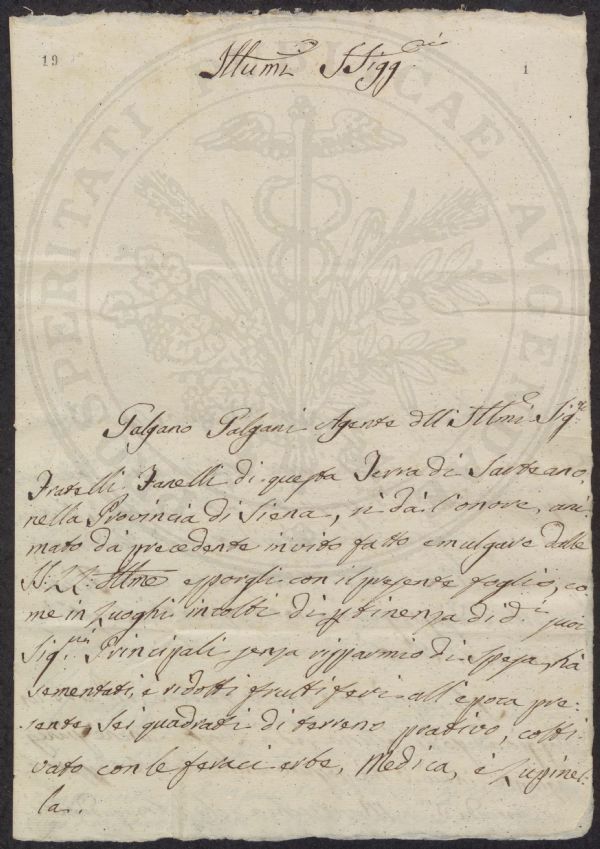 19
1
Illumi SSigg.ri
Galgano Galgani Agente dll' Illmi Sig.ri
Fratelli Fanelli di questa Terra di Sarteano,
nella Provincia di Siena, si dà l'onore, ani=
mato da precedente invito fatto emulgare dalle
SS: LL: Illme esporgli con il presente foglio, co=
me in Luoghi incolti di pertinenza di d.i suoi
Sig.ri Principali senza risparmio di spesa, hà
sementati, e ridotti fruttiferi all'epoca pre=
sente, sei quadrati di terreno prativo, colti=
vato con le feraci erbe, Medica, e Lupinel=
la.
PROSPERITATI PUBLICAE AUGENDAE